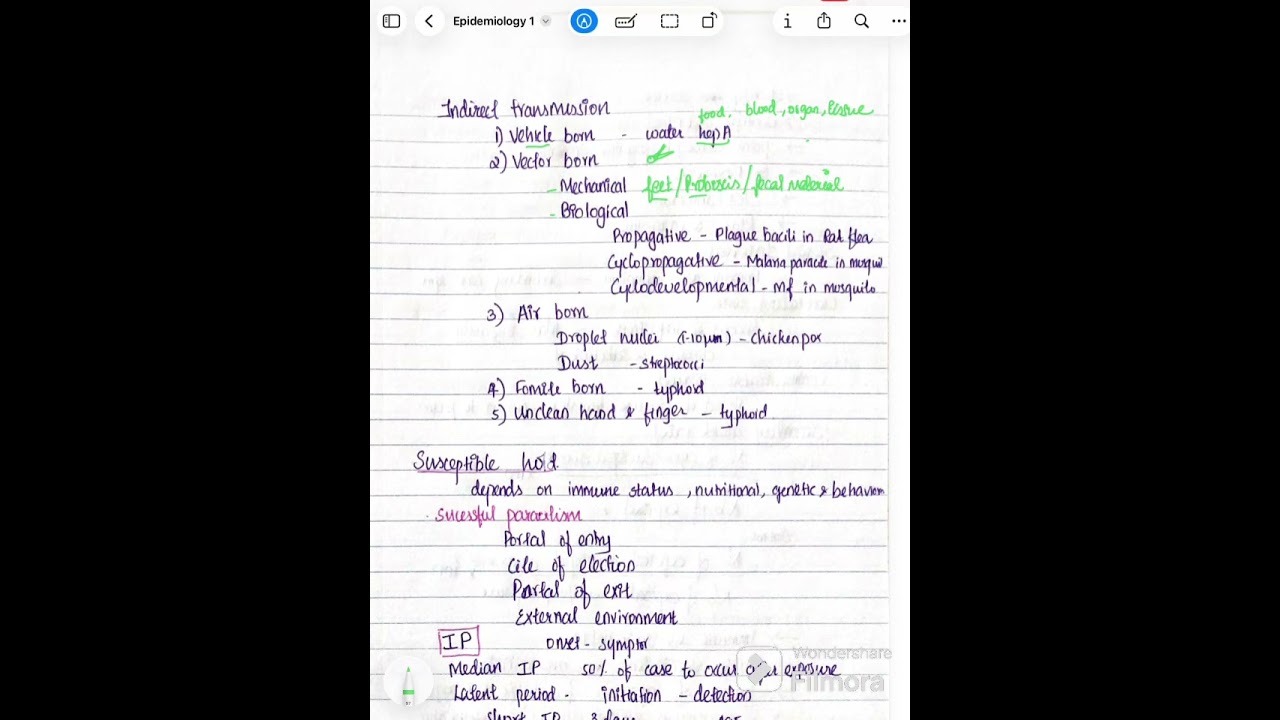 Epidemiology 1
Indirect transmission
food, blood, organ, tissue
1) Vehicle born - water hep A
2) Vector born
- Mechanical feet/Proboscis/fecal material
- Biological
Propagative - Plague bacili in Rat flea
Cyclopropagative - Malaria paracite in mosqui
Cyclodevelopmental - mf in mosquito
3) Air born
Droplet nuclei (1-10μm) - chicken pox
Dust - streptococci
4) Fomite born - typhoid
5) Unclean hand & finger - typhoid
Susceptible
depends on immune status, nutritional, genetic & behaviour
Sucessful
Portal of entry
Cite of election
Portal of exit
External environment
IP onset - symptom
Median IP 50% of case to occur after exposure
Latent period - initiation - detection
Short IP
Wondershare
Filmora